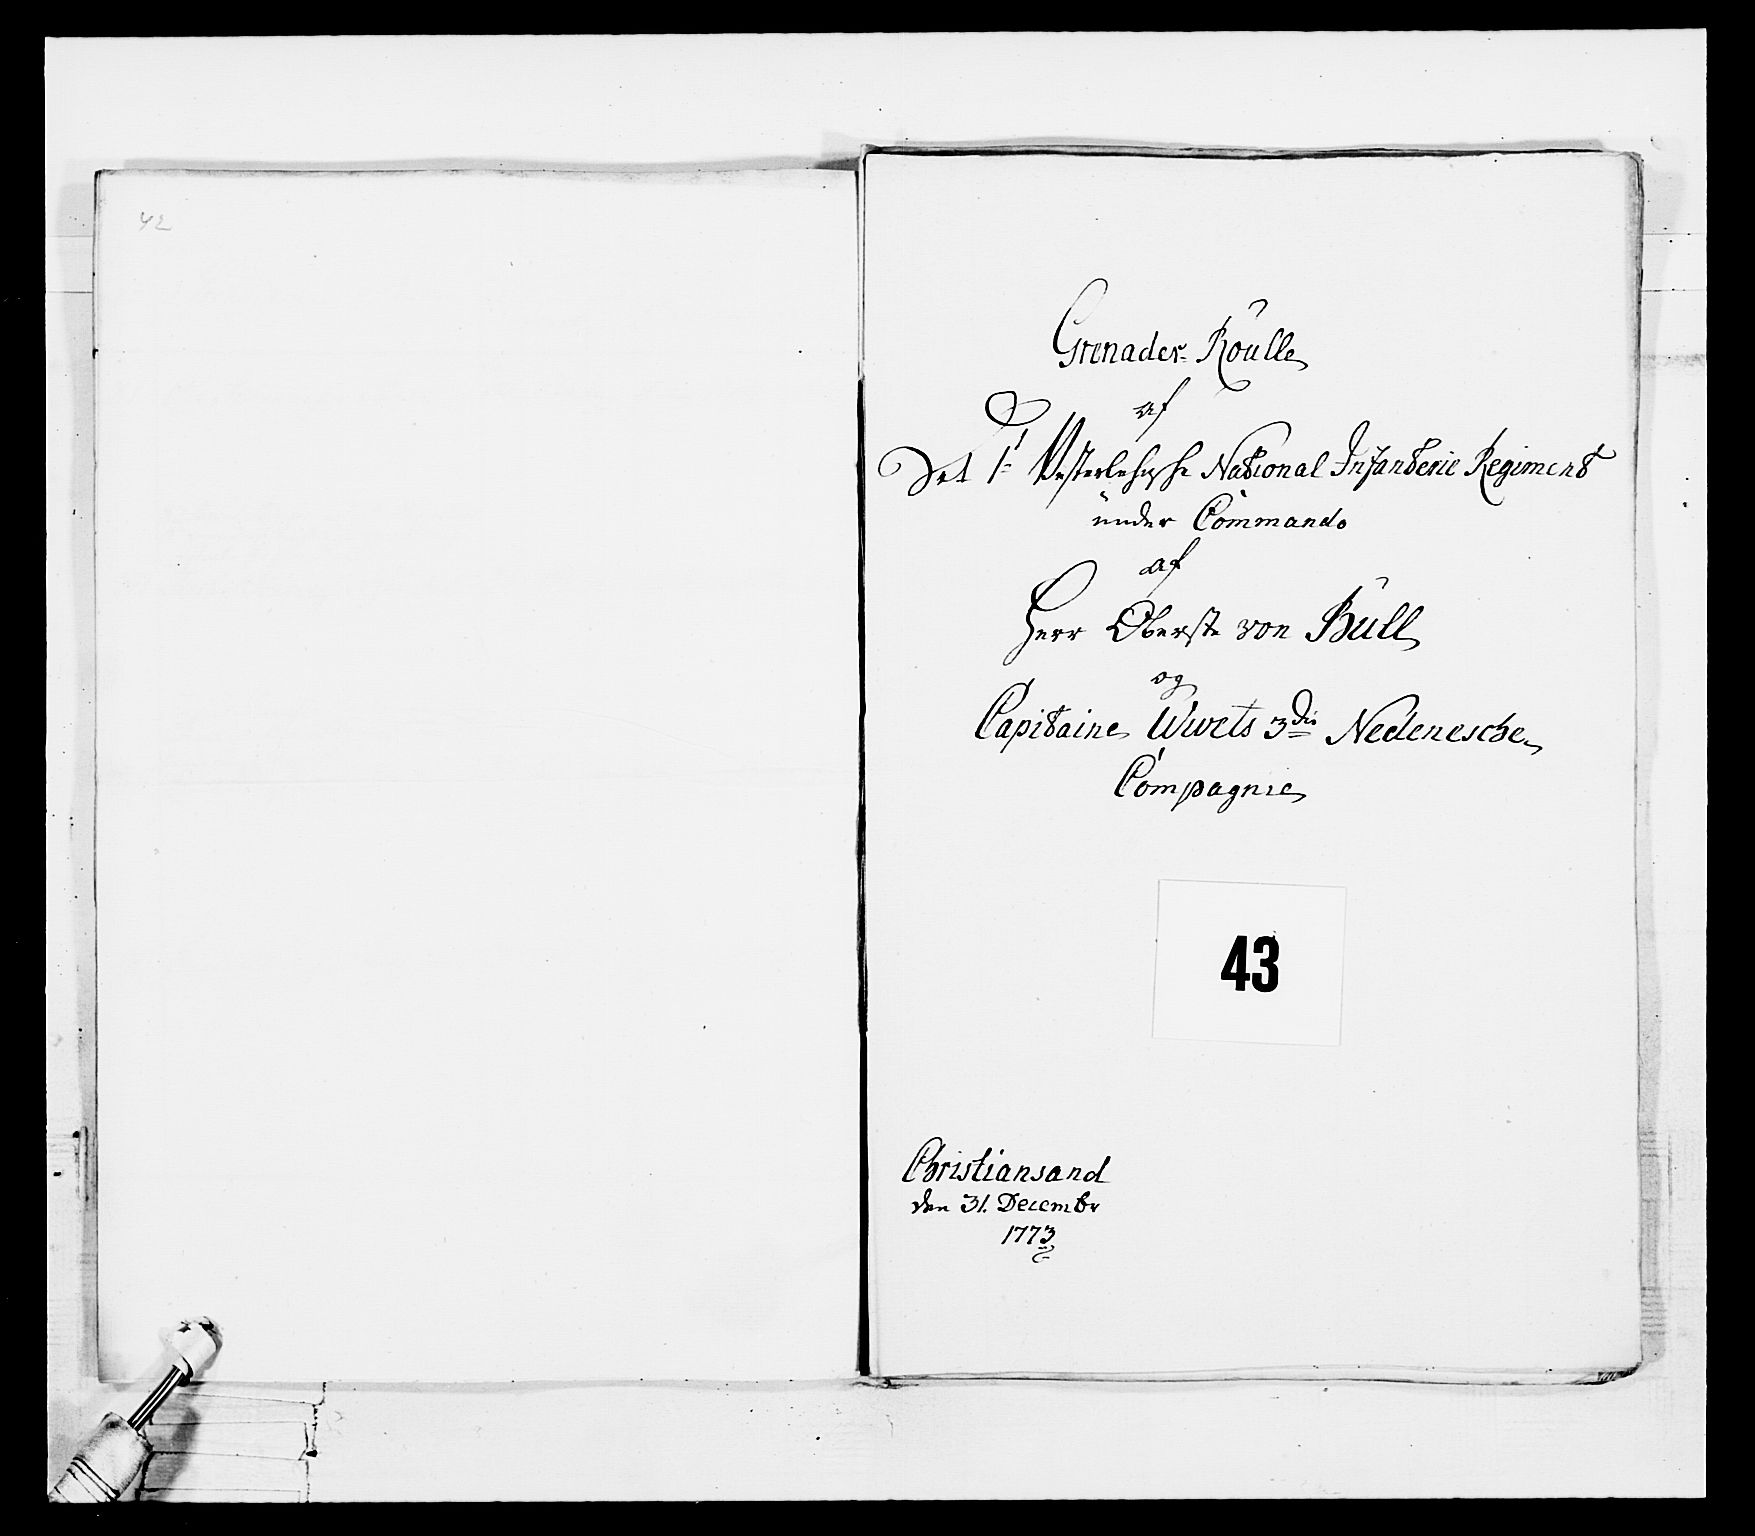 42
Grenader-Roulle
af
Det 1te Vesterlehnske National Infanterie Regiment
under Commando
af
Herr Oberste von Büll
og
Capitaine Wwets 3die Nedenesche
Compagnie
43
Christiansand
den 31. Decembr
1773